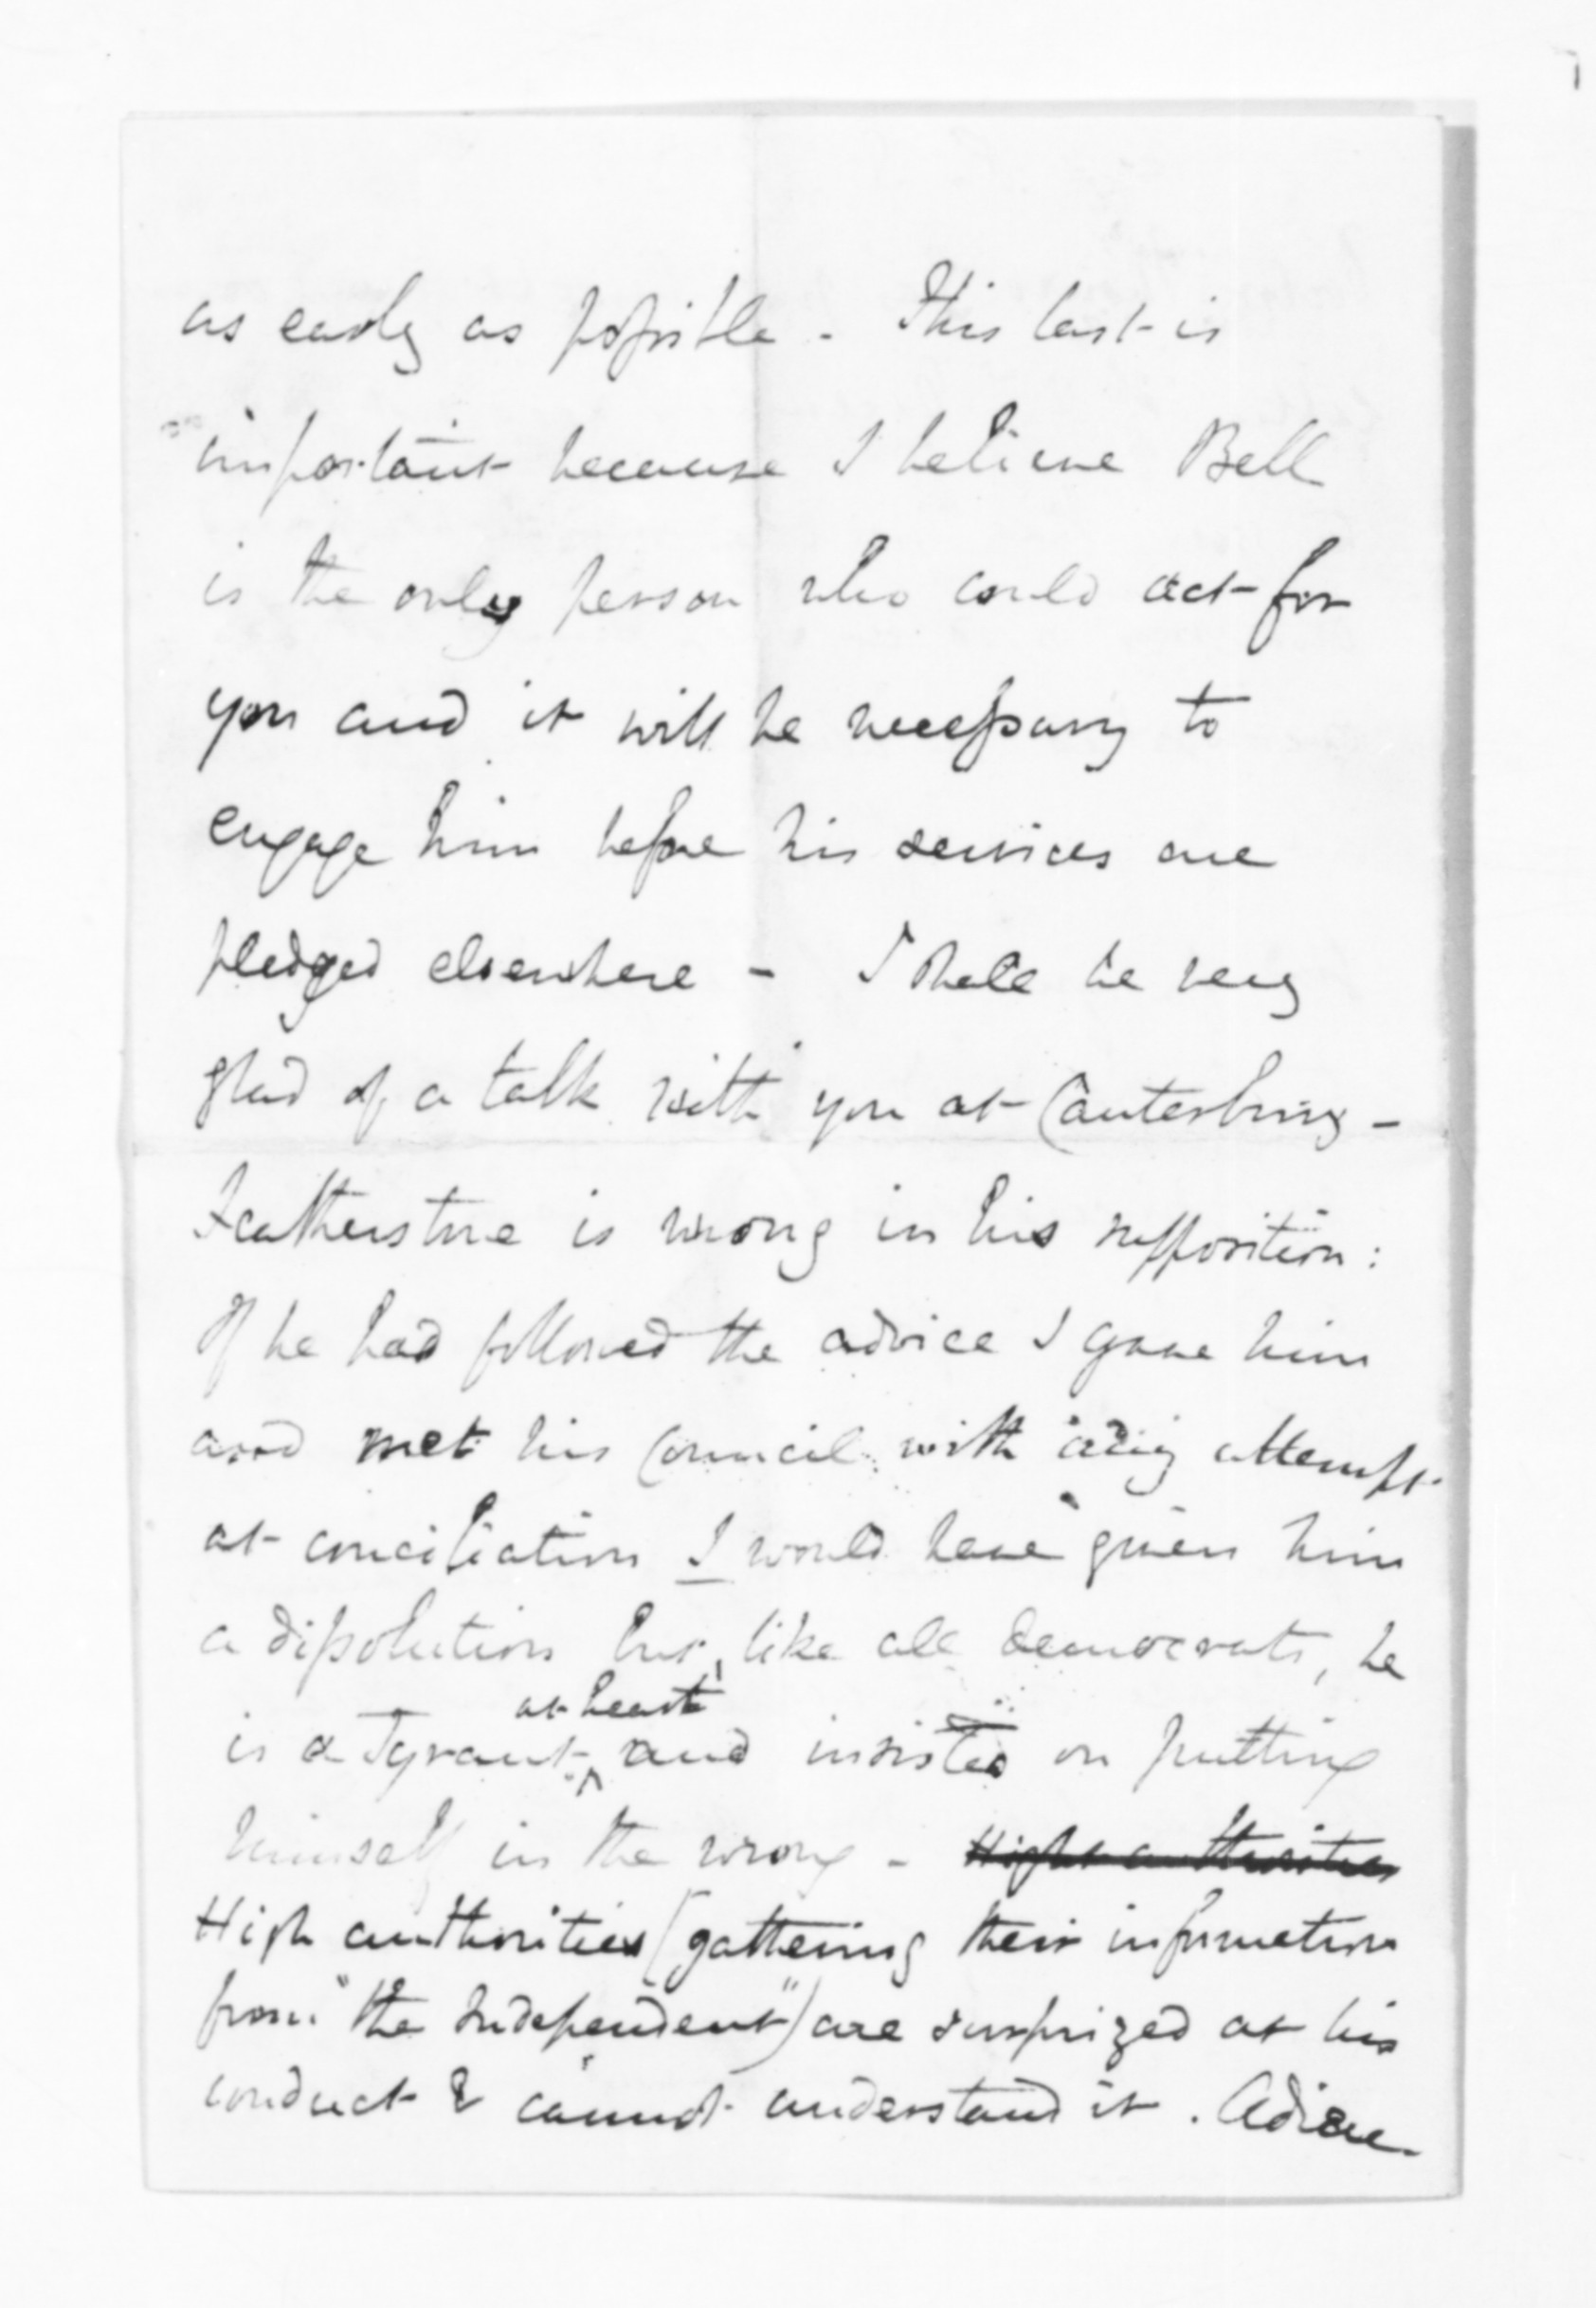 as early as possible - This last is
important because I believe Bell
is the only person who could act for
you and it will be necessary to
engage him before his services are
pledged elsewhere - I shall be very
glad of a talk with you at Canterbury -
Featherstone is wrong in his supposition:
If he had followed the advice I gave him
and met his Council with any attempt
at conciliation I would have given him
a dissolution but, like all democrats, he
is a Tyrant at heart and insisted on putting
himself in the wrong - High authorities
High authorities (gathering their information
from "the Independent") are surprized at his
conduct & cannot understand it. Adieu